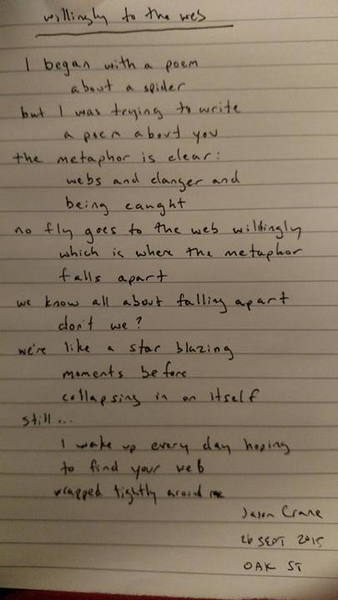 willingly to the web
I began with a poem
about a spider
but I was trying to write
a poem about you
the metaphor is clear:
webs and danger and
being caught
no fly goes to the web willingly
which is where the metaphor
falls apart
we know all about falling apart
don't we?
we're like a star blazing
moments before
collapsing in on itself
still...
I wake up every day hoping
to find your web
wrapped tightly around me
Jason Crane
26 SEPT 2015
OAK ST